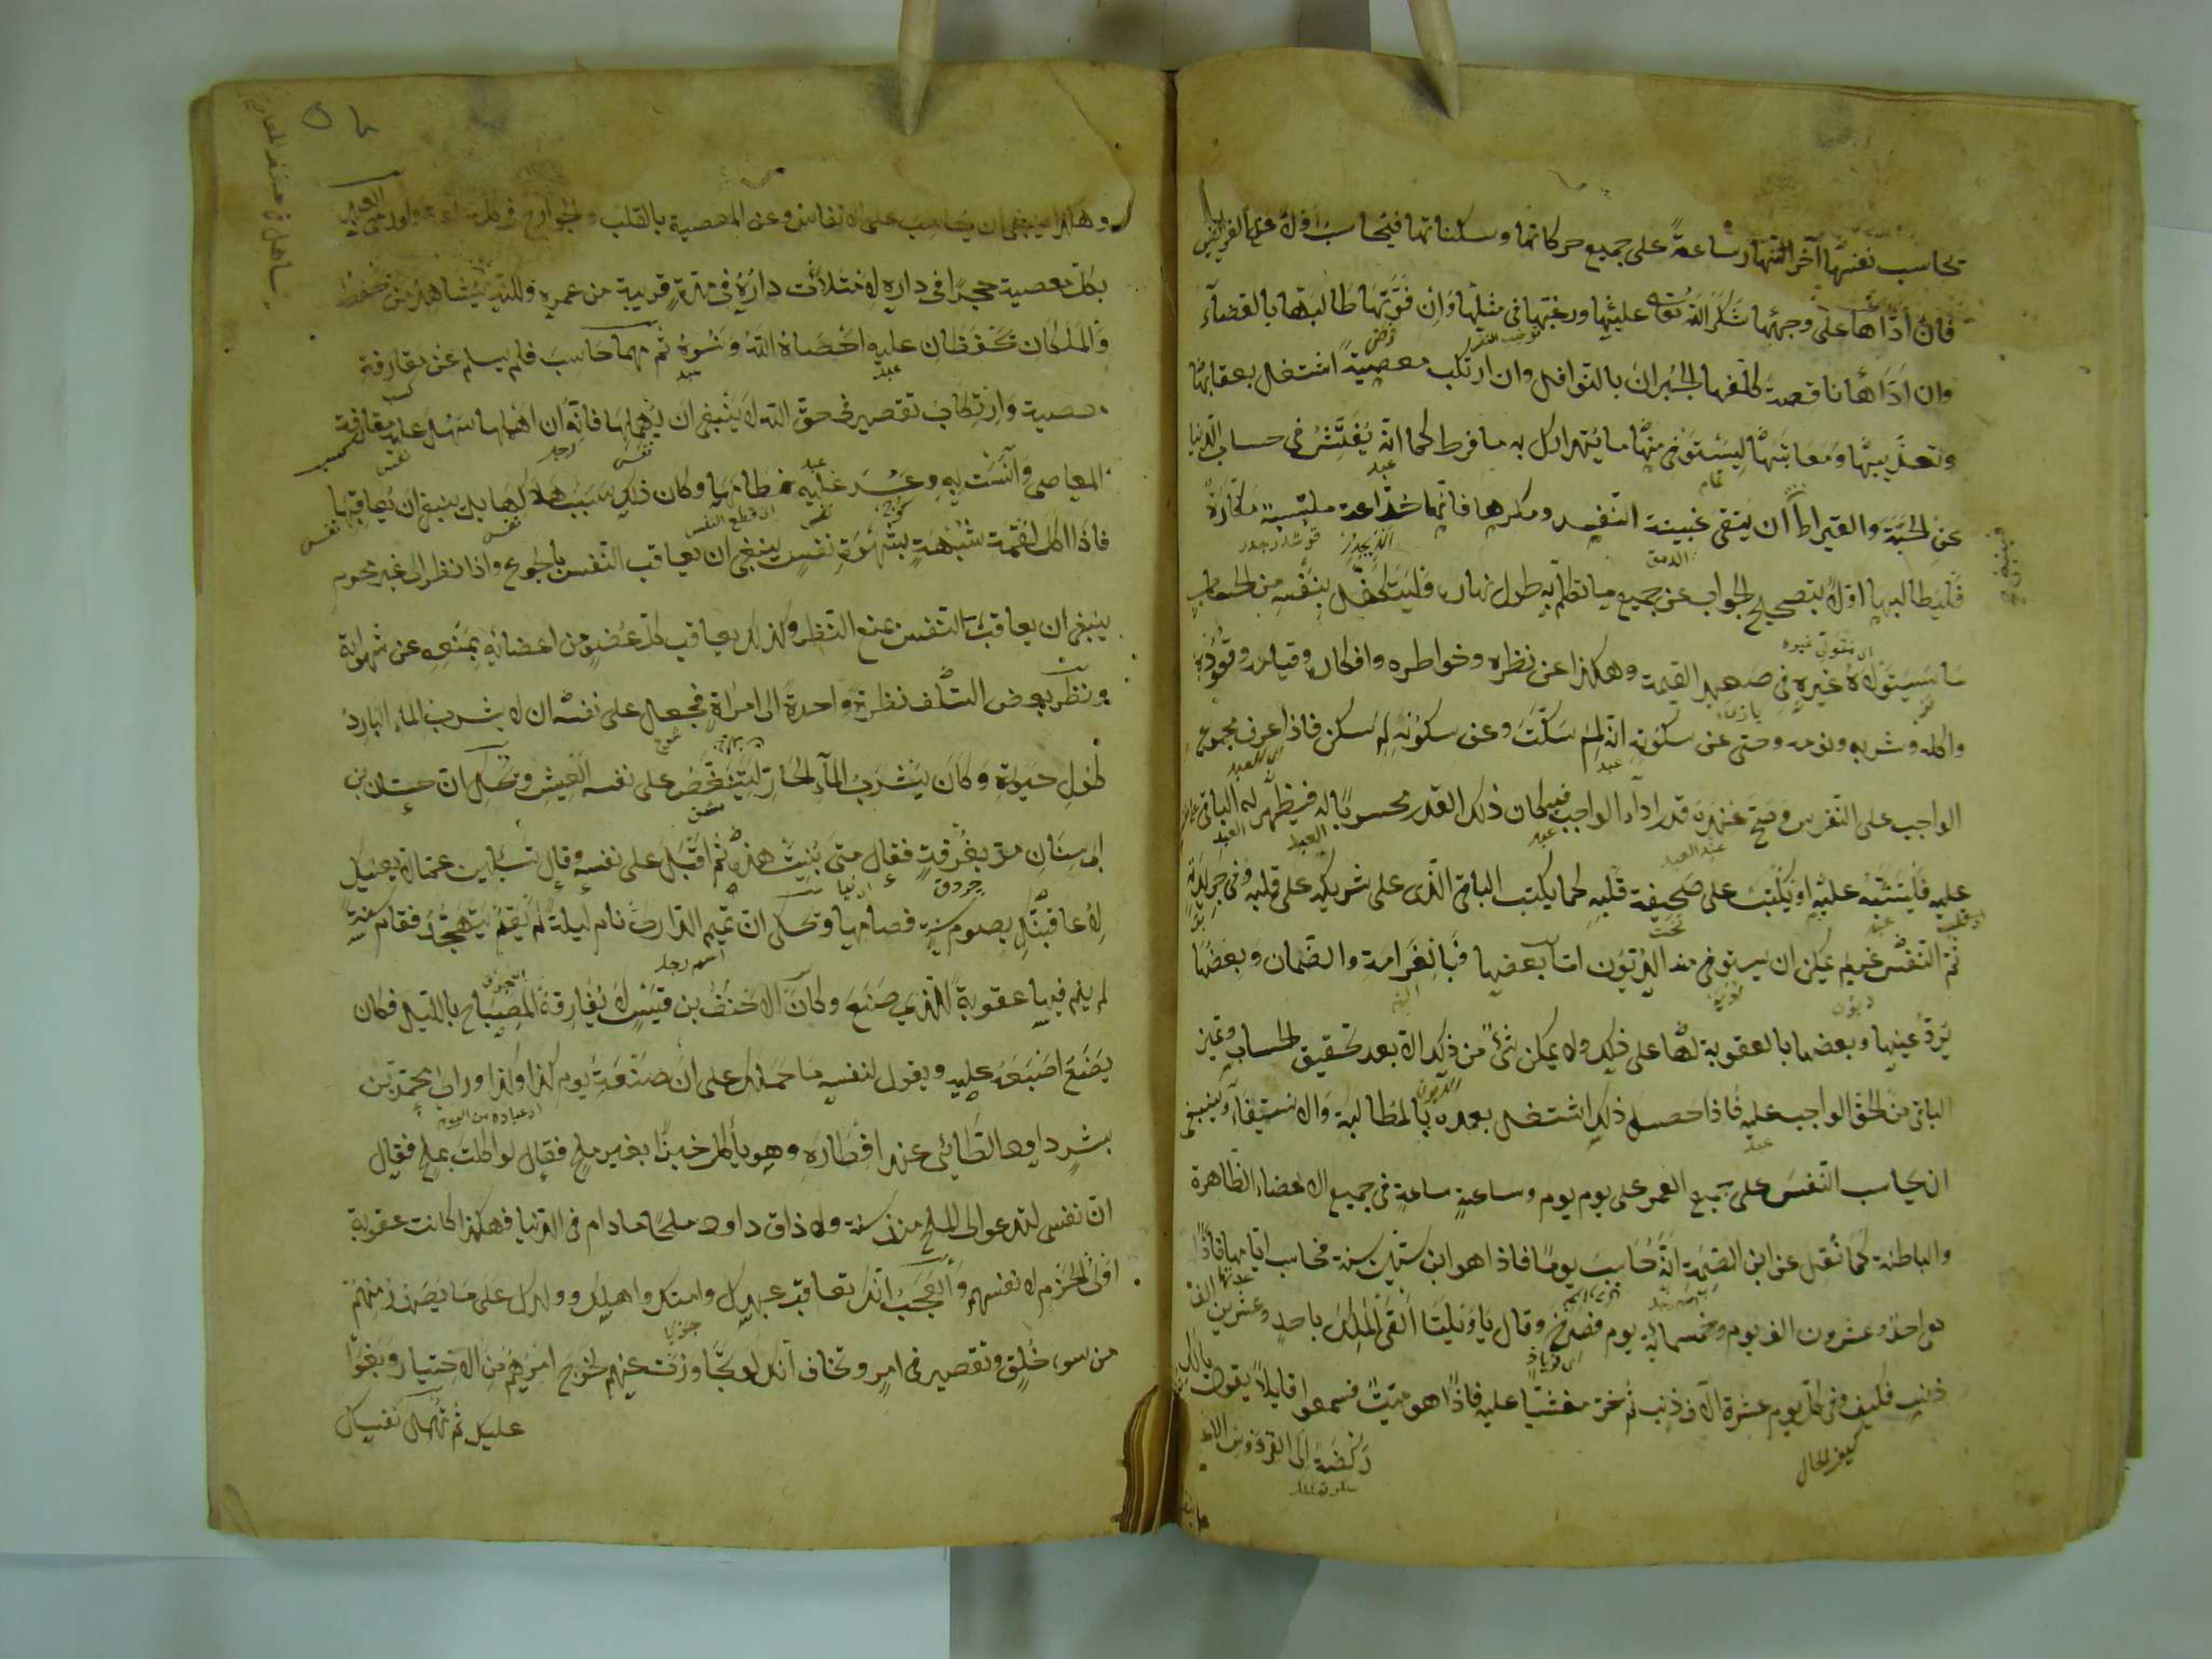 تحاسب نفسها آخر النهار ساعة على جميع حركاتها وسكناتها فيحاسب اولا على الفرائض
فان أدّاها على وجهها شكر الله تعالى عليها ورغبها في مثلها وان فوّتها طالبها بالقضاء
وان أدّاها ناقصة كلفها الجبران بالنوافل وان ارتكب معصية اشتغل بعقابها
وتعذيبها ومعاتبتها ليستوفى منها ما يتدارك به ما فرط كما انه يفتش فى حساب الدنيا
عن الحبة والقيراط أن يتقى غبينة النفس ومكرها فانها خداعة ملبسة مكارة
فليطالبها اوّلا بتصحيح الجواب عن جميع ما تكلم به طول نهاره فليتكفل بنفسه من الحساب
ما سيتولاه غيره فى صعيد القيمة وهكذا عن نظره وخواطره وافكاره وقيامه وقعوده
واكله وشربه ونومه وحتى عن سكوته انه لم سكت وعن سكونه لم سكن فاذا عرف مجموع
الواجب على النفس وصح عنده قدر اداء الواجب فيه كان ذلك القدر محسوبا له فيظهر له الباقى
عليه فليثبته عليها وليكتب على صحيفة قلبه كما يكتب الباقى الذى على شريكه على قلبه وفى جريدته
ثم النفس غريم يمكن ان يستوفى منه الديون اما بعضها فبالغرامة والضمان وبعضها
يردّ عينها وبعضها بالعقوبة لها على ذلك ولا يمكن شئ من ذلك الا بعد تحقيق الحساب وتميز
الباقى من الحق الواجب عليه فاذا حصل ذلك اشتغل بعده بالمطالبة والاستيفاء وينبغى
ان يحاسب النفس على جميع العمر على يوم يوم وساعة ساعة فى جميع الاعضاء الظاهرة
والباطنة كما نقل عن ابن الصمة انه حاسب يوما فاذا هو ابن ستين سنة فحاسب ايامها فاذا
هى احد وعشرون الف يوم وخمسمائة يوم فصرخ وقال يا ويلتا ألقى الملك باحد وعشرين الف
ذنب فكيف وفى كل يوم عشرة آلاف ذنب ثم خرّ مغشيا عليه فاذا هو ميت فسمعوا قايلا يقول يا لك
ركضة الى الفردوس الاعلى
وهكذا ينبغى ان يحاسب على الانفاس وعن المعصية بالقلب والجوارح فى كل ساعة ولو رمى العبد
بكل معصية حجرا فى داره لامتلأت داره فى مدة قريبة من عمره
والملكان يحفظان عليه احصاه الله ونسوه ثم مهما حاسب فلم يسلم عن مقارفة
معصية وارتكاب تقصير فى حق الله لا ينبغى ان يهملها فانه ان اهملها سهل عليه مقارفة
المعاصى وآنست به وعسر عليه فطامها وكان ذلك سبب هلاكها بل ينبغى ان يعاقبها
فاذا اكل لقمة شبهة بشهوة نفس ينبغى ان يعاقب النفس بالجوع واذا نظر الى غير محرم
ينبغى ان يعاقب النفس بمنع النظر وكذلك يعاقب كل عضو من اعضائه بمنعه عن شهواته
ونظر بعض السلف نظرة واحدة الى امرأة فجعل على نفسه ان لا يشرب الماء البارد
طول حيوته وكان يشرب الماء الحار لينغص على نفسه العيش وتحكى ان حسان بن
ابى سنان مرّ بغرفة فقال متى بنيت هذه ثم اقبل على نفسه وقال تسألين عما لا يعنيك
لأعاقبنك بصوم سنة فصامها وتحكى ان تميم الدارى نام ليلة لم يقم يتهجد فقام سنة
لم ينم فيها عقوبة للذى صنع وكان الاحنف بن قيس لا يفارقه المصباح بالليل فكان
يضع اصبعه عليه ويقول لنفسه ما حملك على ان صنعت يوم كذا وكذا ورأى محمد بن
بشر داود الطائى عند افطاره وهو يأكل خبزا بغير ملح فقال لو اكلت بملح فقال
ان نفسى لتدعو الى الملح منذ سنة ولا ذاق داود ملحا ما دام فى الدنيا فهكذا كانت عقوبة
اولى الحزم لانفسهم والعجب انك تعاقب عبدك وامتك واهلك وولدك على ما يصدر منهم
من سوء خلق وتقصير فى امر وتخاف انك لو تجاوزت عنهم لخرج امرهم من الاختيار وبغوا
عليك ثم تهمل نفسك